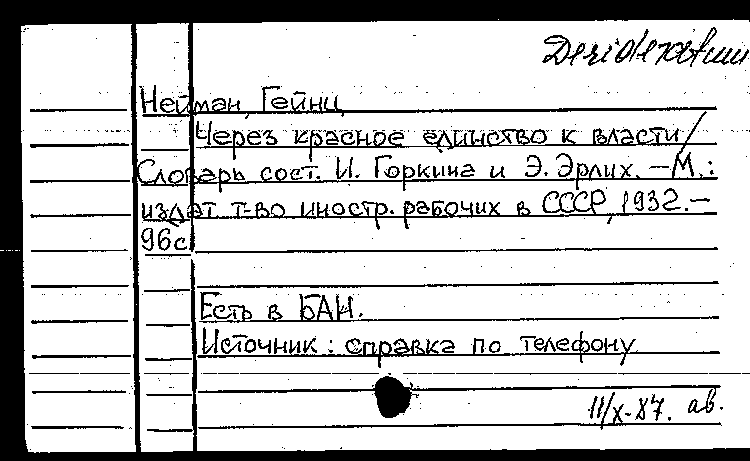 Desideratum
Нейман, Гейнц
Через красное единство к власти/
Словарь сост. И. Горкина и Э. Эрлих. — М.:
издат. т-во иностр. рабочих в СССР, 1932.—
96с
Есть в БАН.
Источник: справка по телефону
11/X-87. ав.